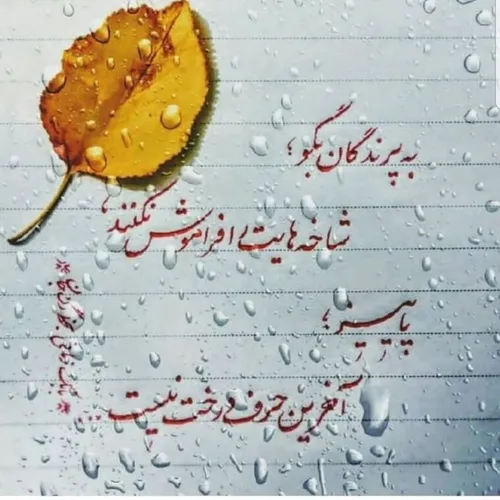 به پرندگان بگو؛
شاخه هایت را فراموش نکنند،
پاییز؛
آخرین حرف درخت نیست...